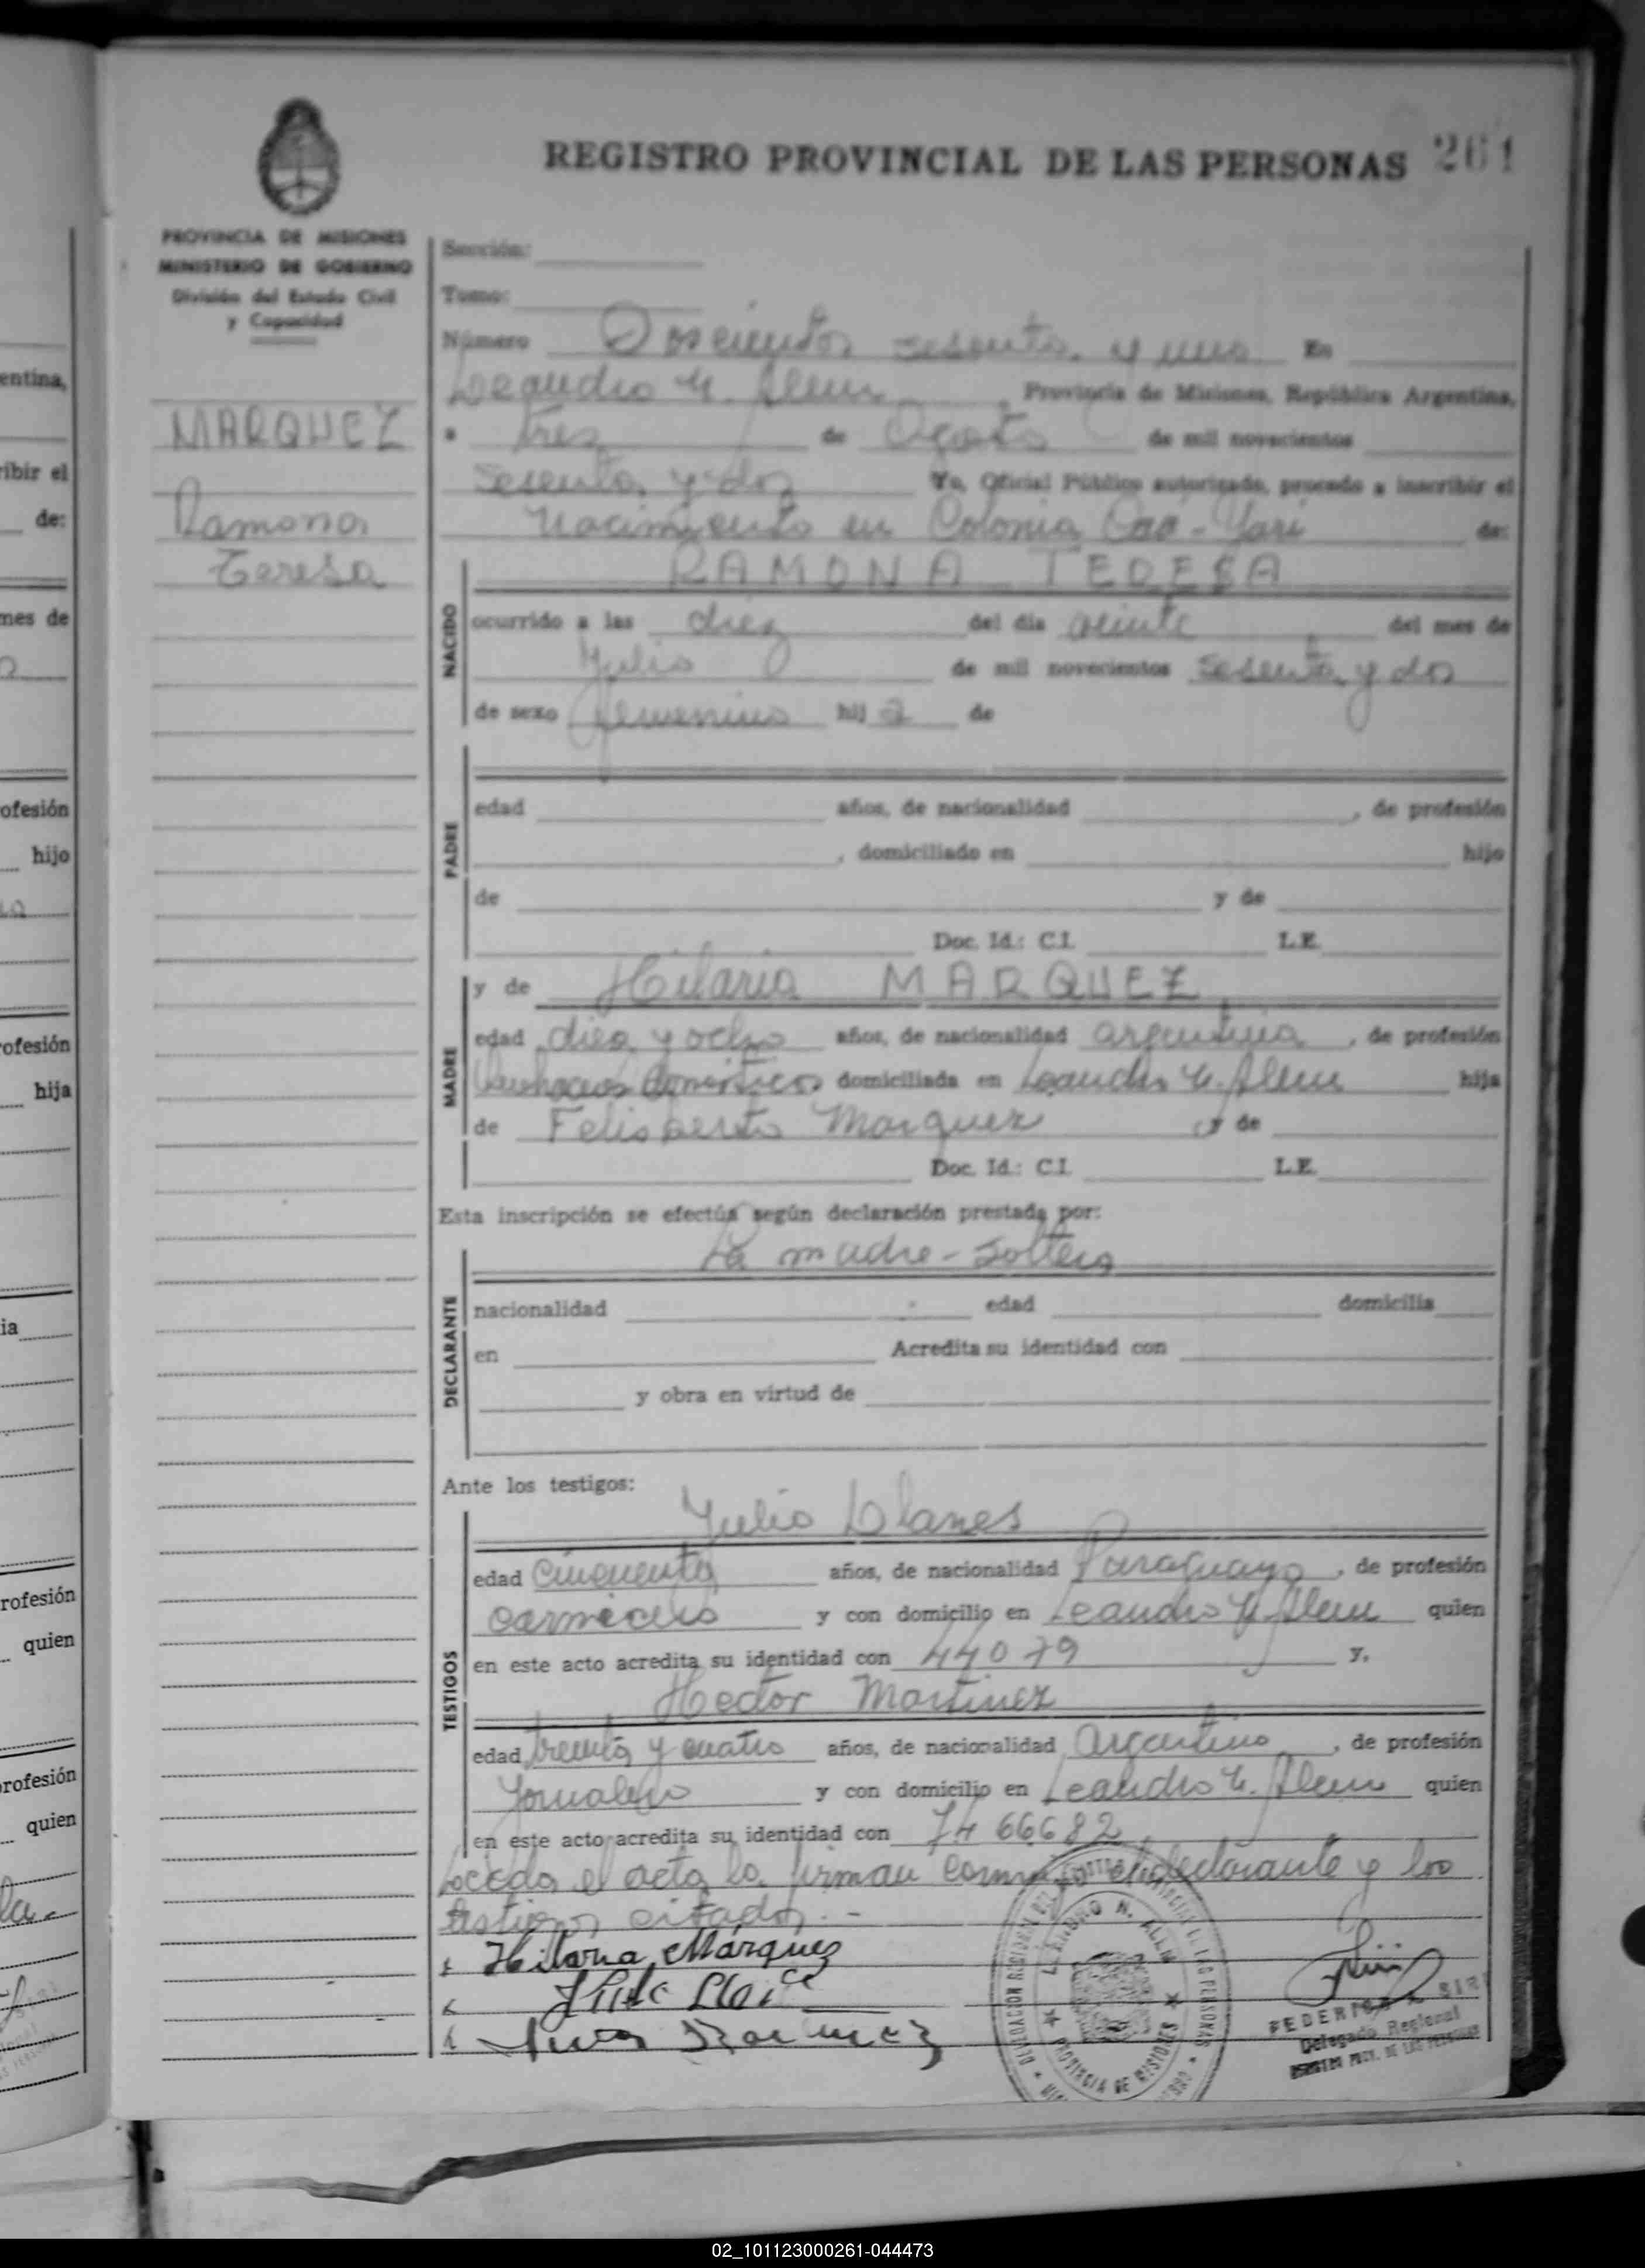 REGISTRO PROVINCIAL DE LAS PERSONAS 261
PROVINCIA DE MISIONES
MINISTERIO DE GOBIERNO
División del Estado Civil
y Capacidad
MARQUEZ
Ramona
Teresa
Sección:
Tomo:
Número Doscientos sesenta y uno En
Leandro N. Alem, Provincia de Misiones, República Argentina,
a tres de Agosto de mil novecientos
sesenta y dos Yo, Oficial Público autorizado, procedo a inscribir el
Nacimiento en Colonia Caá-Yari de:
NACIDO
RAMONA TERESA
ocurrido a las diez del día veinte del mes de
Julio de mil novecientos sesenta y dos
de sexo femenino hija de
PADRE
edad años, de nacionalidad , de profesión
, domiciliado en hijo
de y de
Doc. Id.: C.I. L.E.
MADRE
y de Hilaria MARQUEZ
edad diez y ocho años, de nacionalidad argentina, de profesión
domésticos domiciliada en Leandro N. Alem hija
de Felisberto Marquez y de
Doc. Id.: C.I. L.E.
Esta inscripción se efectúa según declaración prestada por:
DECLARANTE
La madre-soltera
nacionalidad edad domicilia
en Acredita su identidad con
y obra en virtud de
Ante los testigos:
TESTIGOS
Julio Llanes
edad cincuenta años, de nacionalidad Paraguayo, de profesión
carnicero y con domicilio en Leandro N. Alem quien
en este acto acredita su identidad con 44079 y,
Hector Martinez
edad treinta y cuatro años, de nacionalidad Argentino, de profesión
Jornalero y con domicilio en Leandro N. Alem quien
en este acto acredita su identidad con 7466682
el acta la firman declarante y los
testigos citados.-
Hilaria Márquez
DELEGACION
PROVINCIA DE MISIONES
FEDERICO
Delegado Regional
REGISTRO PROV. DE LAS PERSONAS
entina,
ribir el
de:
mes de
ofesión
hijo
ofesión
hija
ia
rofesión
quien
rofesión
quien
02_101123000261-044473